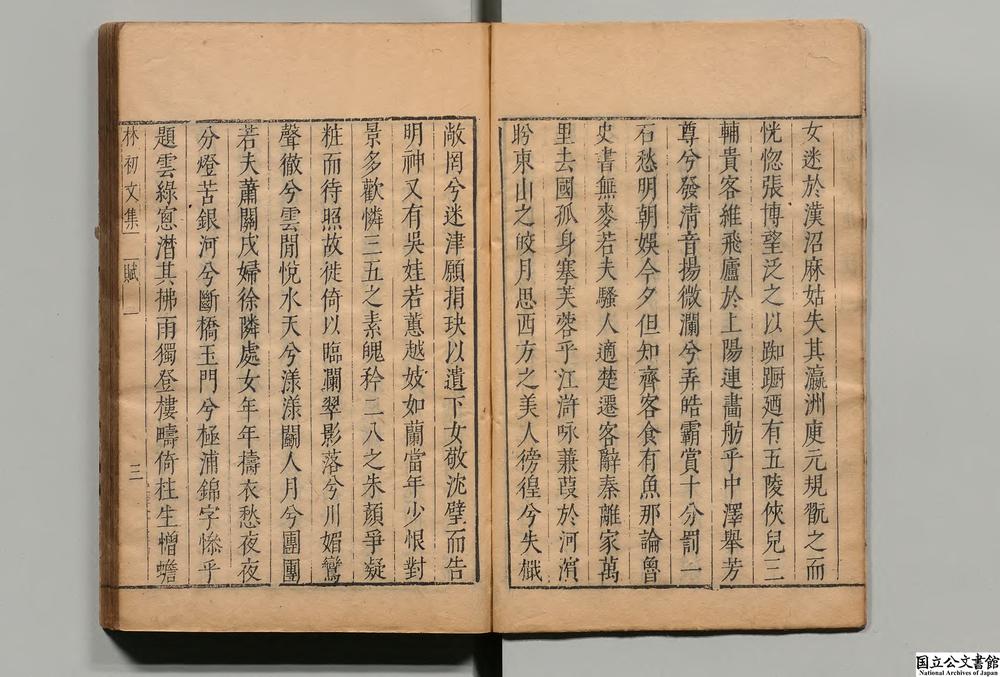 女迷於漢沼麻姑失其瀛洲庾元規翫之而
恍惚張博望泛之以踟蹰廼有五陵俠兒三
輔貴客維飛廬於上陽連畵舫乎中澤舉芳
尊兮發清音揚微瀾兮弄皓霸賞十分罰一
石愁明朝娛今夕但知齊客食有魚那論魯
史書無麥若夫騷人適楚遷客辭秦離家萬
里去國孤身塞芙蓉乎江滸咏蒹葭於河濱
盻東山之皎月思西方之美人徬徨兮失檝
敞罔兮迷津願捐玦以遺下女敬沈璧而告
明神又有吳娃若蕙越妓如蘭當年少恨對
景多歡憐三五之素魄矜二八之朱顔爭凝
粧而待照故徙倚以臨瀾翠影落兮川媚鸞
聲徹兮雲閒悅水天兮漾漾鬭人月兮團團
若夫蕭關戍婦徐隣處女年年擣衣愁夜夜
分燈苦銀河兮斷橋玉門兮極浦錦字慘乎
題雲綠窻潛其拂雨獨登樓疇倚柱生憎蟾
林初文集 賦 三
国立公文書館
National Archives of Japan